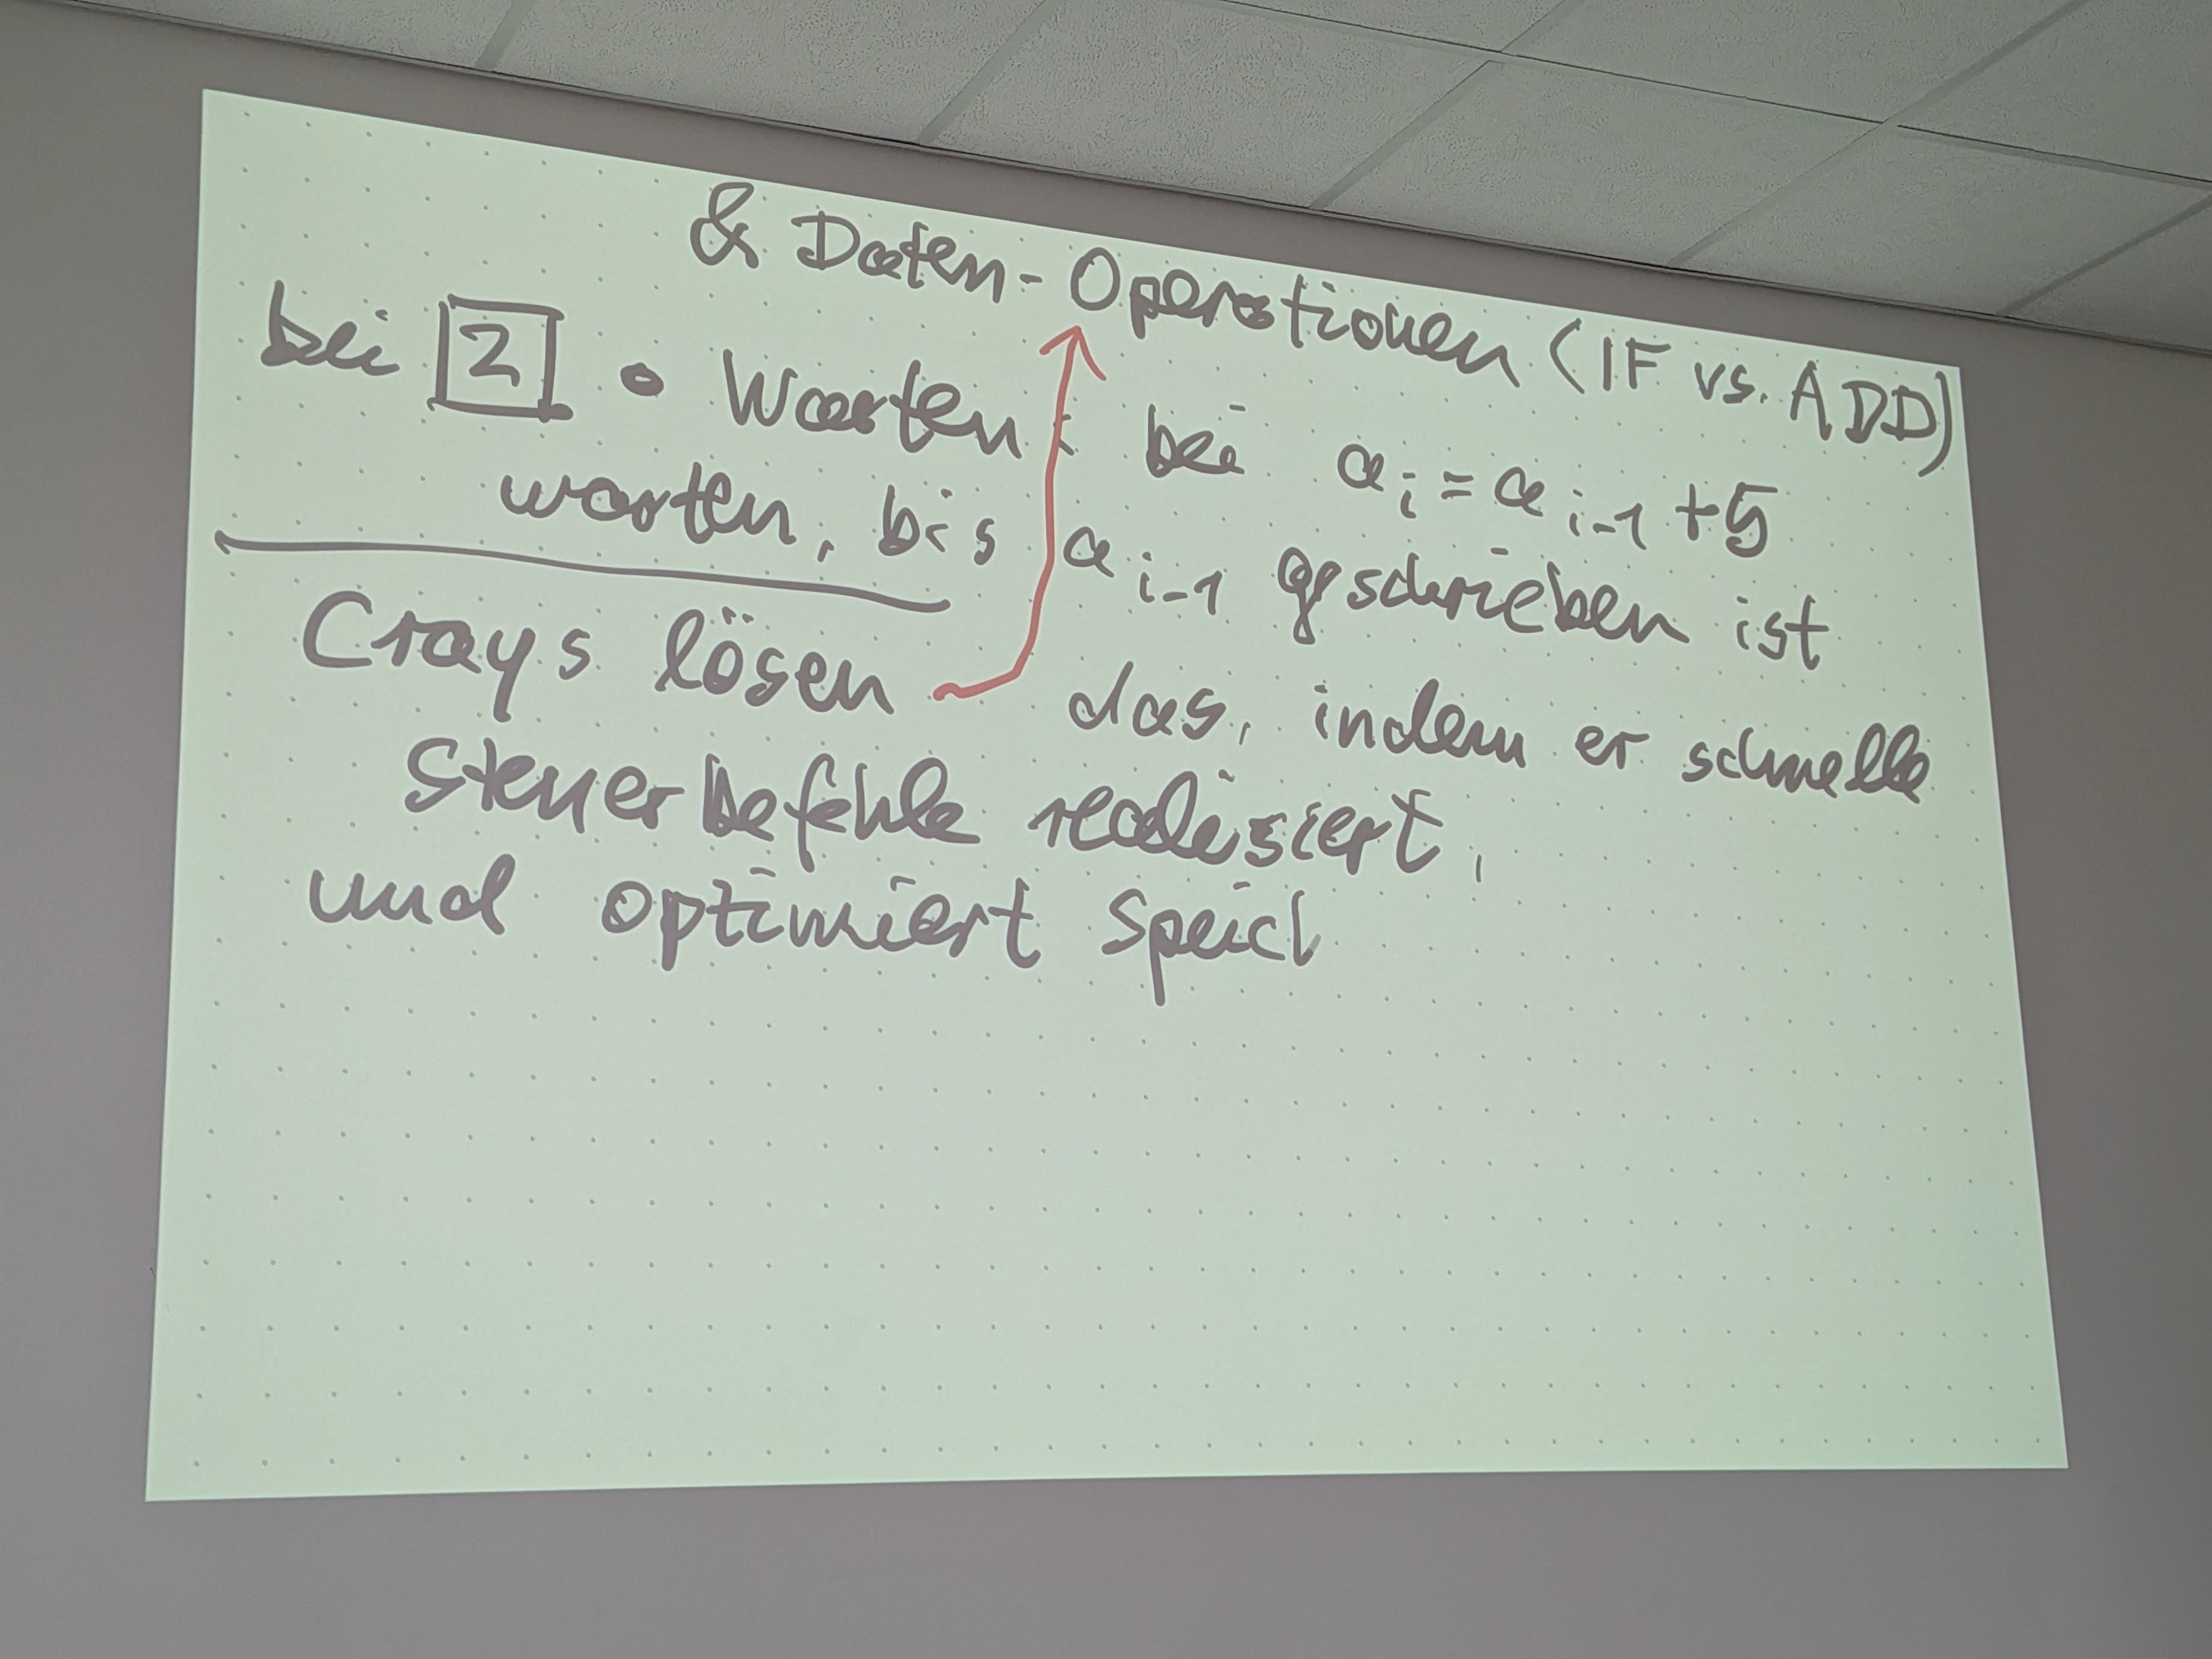 & Daten-Operationen (IF vs. ADD)
bei 2 • Warten: bei a i = a i-1 + 5
warten, bis a i-1 geschrieben ist
Crays lösen das, indem er schnelle
Steuerbefehle realisiert,
und optimiert Speicl